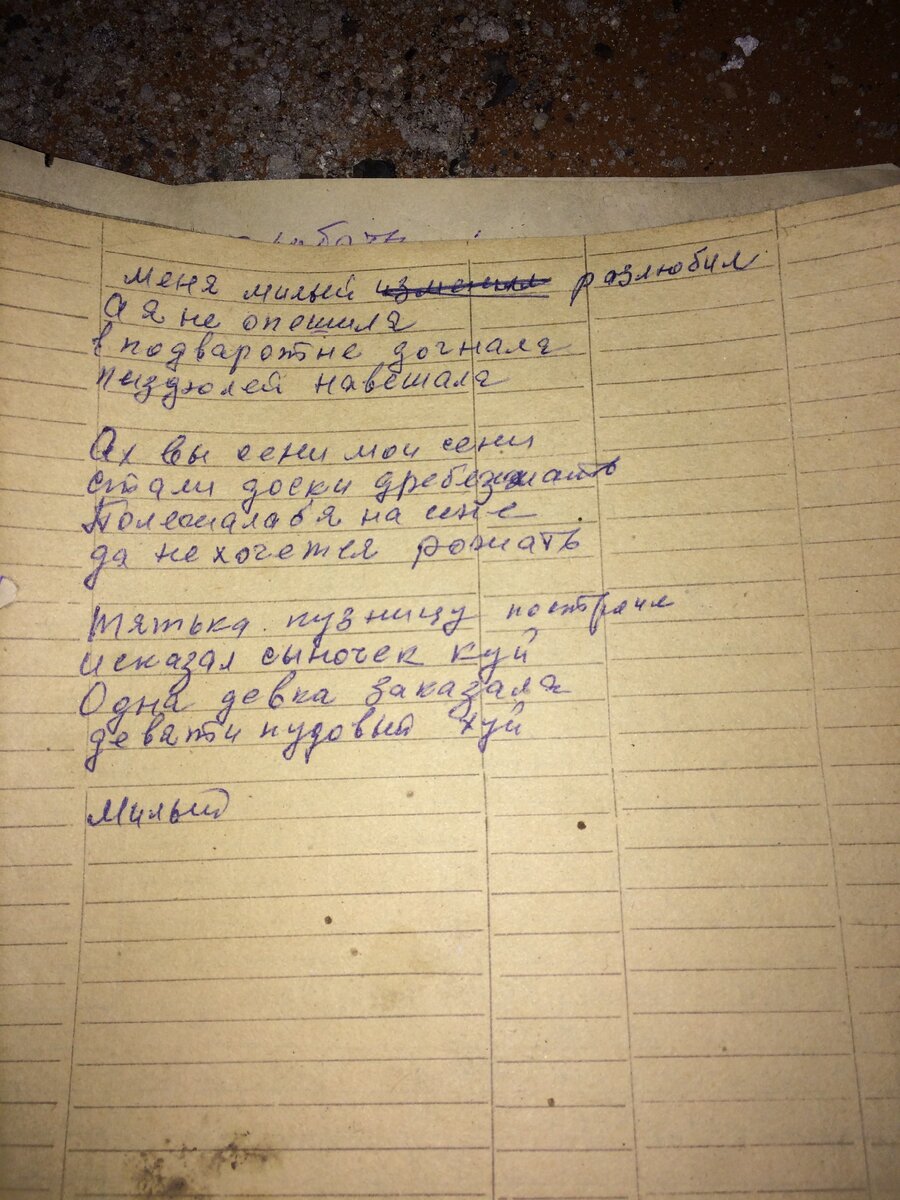 меня милый изменил разлюбил
А я не опешила
в подваротне догнала
пиздюлей навешала
Ах вы сени мои сени
стали доски дребезжать
Полежала б я на сене
да не хочется рожать
Тятька кузницу построил
и сказал сыночек куй
Одна девка заказала
девяти пудовый хуй
Милый